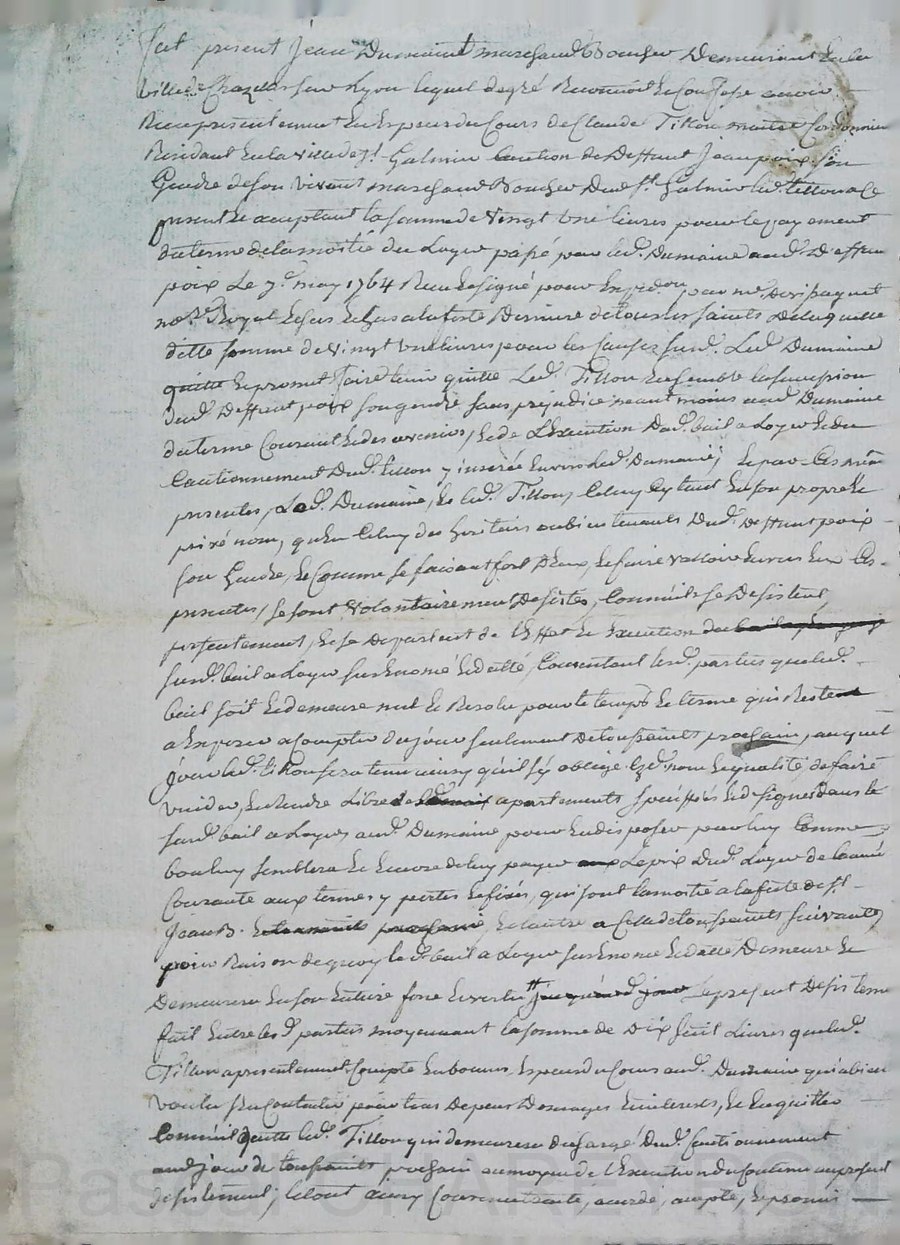 fut present Jean Dumaine marchand Boucher Demeurant En la
ville de Chazelles sur Lyon lequel de gré Reconnoit Et Confesse avoir
Reçu presentement En Especes du Cours de Claude Tillon maitre Cordonnier
Residant En la ville de St Galmier Caution de Deffunt Jean poix son
Gendre de son vivant marchand Boucher Dud. St Galmier led. tillon a ce
present Et acceptant la somme de vingt une livres pour le payement
du terme de la moitié du Loyer passé pour led. Dumaine aud. Deffunt
poix Le 7e may 1764 Reçu Et signé pour Expedon par me
nore Royal Echus a la feste Derniere de tous les saints De laquelle
ditte somme de vingt une livres pour les causes susd. Led. Dumaine
quitte Et promet faire tenir quitte Led. Tillon Ensemble la succession
dud. Deffunt poix son gendre sans prejudice neantmoins aud. Dumaine
du terme Courant Et des avenirs, Et de L'Execution Dud. bail a Loyer Et du
Cautionnement Dud. tillon y inserée Envers led. Dumaine; Et par Ces même
presentes, Led. Dumaine, Et led. Tillon, Celuy Cy tant En son propre Et
privé nom, qu'En Celuy des heritiers ou bien tenants Dud. Deffunt poix
son Gendre, Et Comme se faisant fort D'eux, Et faire valloir Envers Eux Ces
presentes, se sont volontairement Desistés, Comme ils se Desistent
presentement, Et se Departent de l'Effet Et Execution du bail
susd. bail a Loyer sus Enoncé Et datté, Consentant lesd. parties que led.
bail soit Et demeure nul Et Resolu pour le temps Et terme qui Reste
a Expirer a Compter du jour seulement De toussaints prochain, auquel
jour led. tillon sera tenu ainsy qu'il s'y oblige Esd. nom Et qualité de faire
vuider, Et Rendre Libre les apartements speciffiés Et designés dans le
susd. bail a Loyer, aud. Dumaine pour En disposer par luy Comme
bon luy semblera Et Encore de luy payer Le prix Dud. Loyer de l'année
Courante aux termes y portés Et fixés, qui sont la moitié a la feste de St
Jean B. Et l'autre a Celle de toussaints suivante,
pour Raison de quoy led. bail a Loyer sus Enoncé Et datté Demeure Et
Demeurera En son Entiere force Et vertu Le present Desisteme
fait Entre les d. parties moyennant la somme de Dix huit Livres que led.
Tillon a presentement Compté En bonnes Especes du Cours aud. Dumaine qui a bien
voulu s'en Contenter pour tous Depens Domages Et interets, Et En quitter
Comme il quitte led. Tillon qui demeurera dechargé Dud. Cautionnement
aud. jour de toussaints prochain au moyen de l'Execution du Contenu au present
desistement; le tout ainsy Convenu accordé, accepté, Et promis
Pascal CHAREYRON